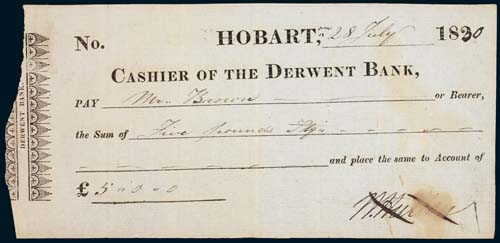 No. HOBART, 28 July 1830
CASHIER OF THE DERWENT BANK,
PAY Mr. Brown or Bearer,
the Sum of Five pounds Stg
and place the same to Account of
£ 5 " 0 " 0
DERWENT BANK